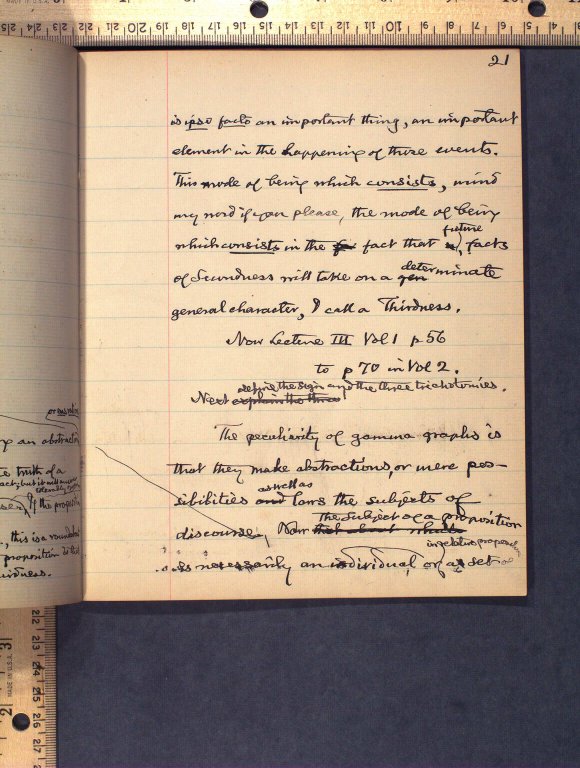 21
is ipso facto an important thing, an important
element in the happening of those events.
This mode of being which consists, mind
my word if you please, the mode of being
future
which consists in the fact that facts
determinate
of Secundness will take on a gen
general character, I call a Thirdness.
Now Lecture III Vol 1 p 56
to p 70 in Vol 2.
define the sign and the three trichotomies.
Next explain the three
The peculiarity of gamma graphs is
that they make abstractions, or mere pos-
as well as
sibilities and laws the subjects of
the subject of a proposition
discourse. Now that about which
is necessarily an individual, or a set of
an abstraction
truth of a
If the proposition
this is a roundabout
proposition
MADE IN U.S.A.